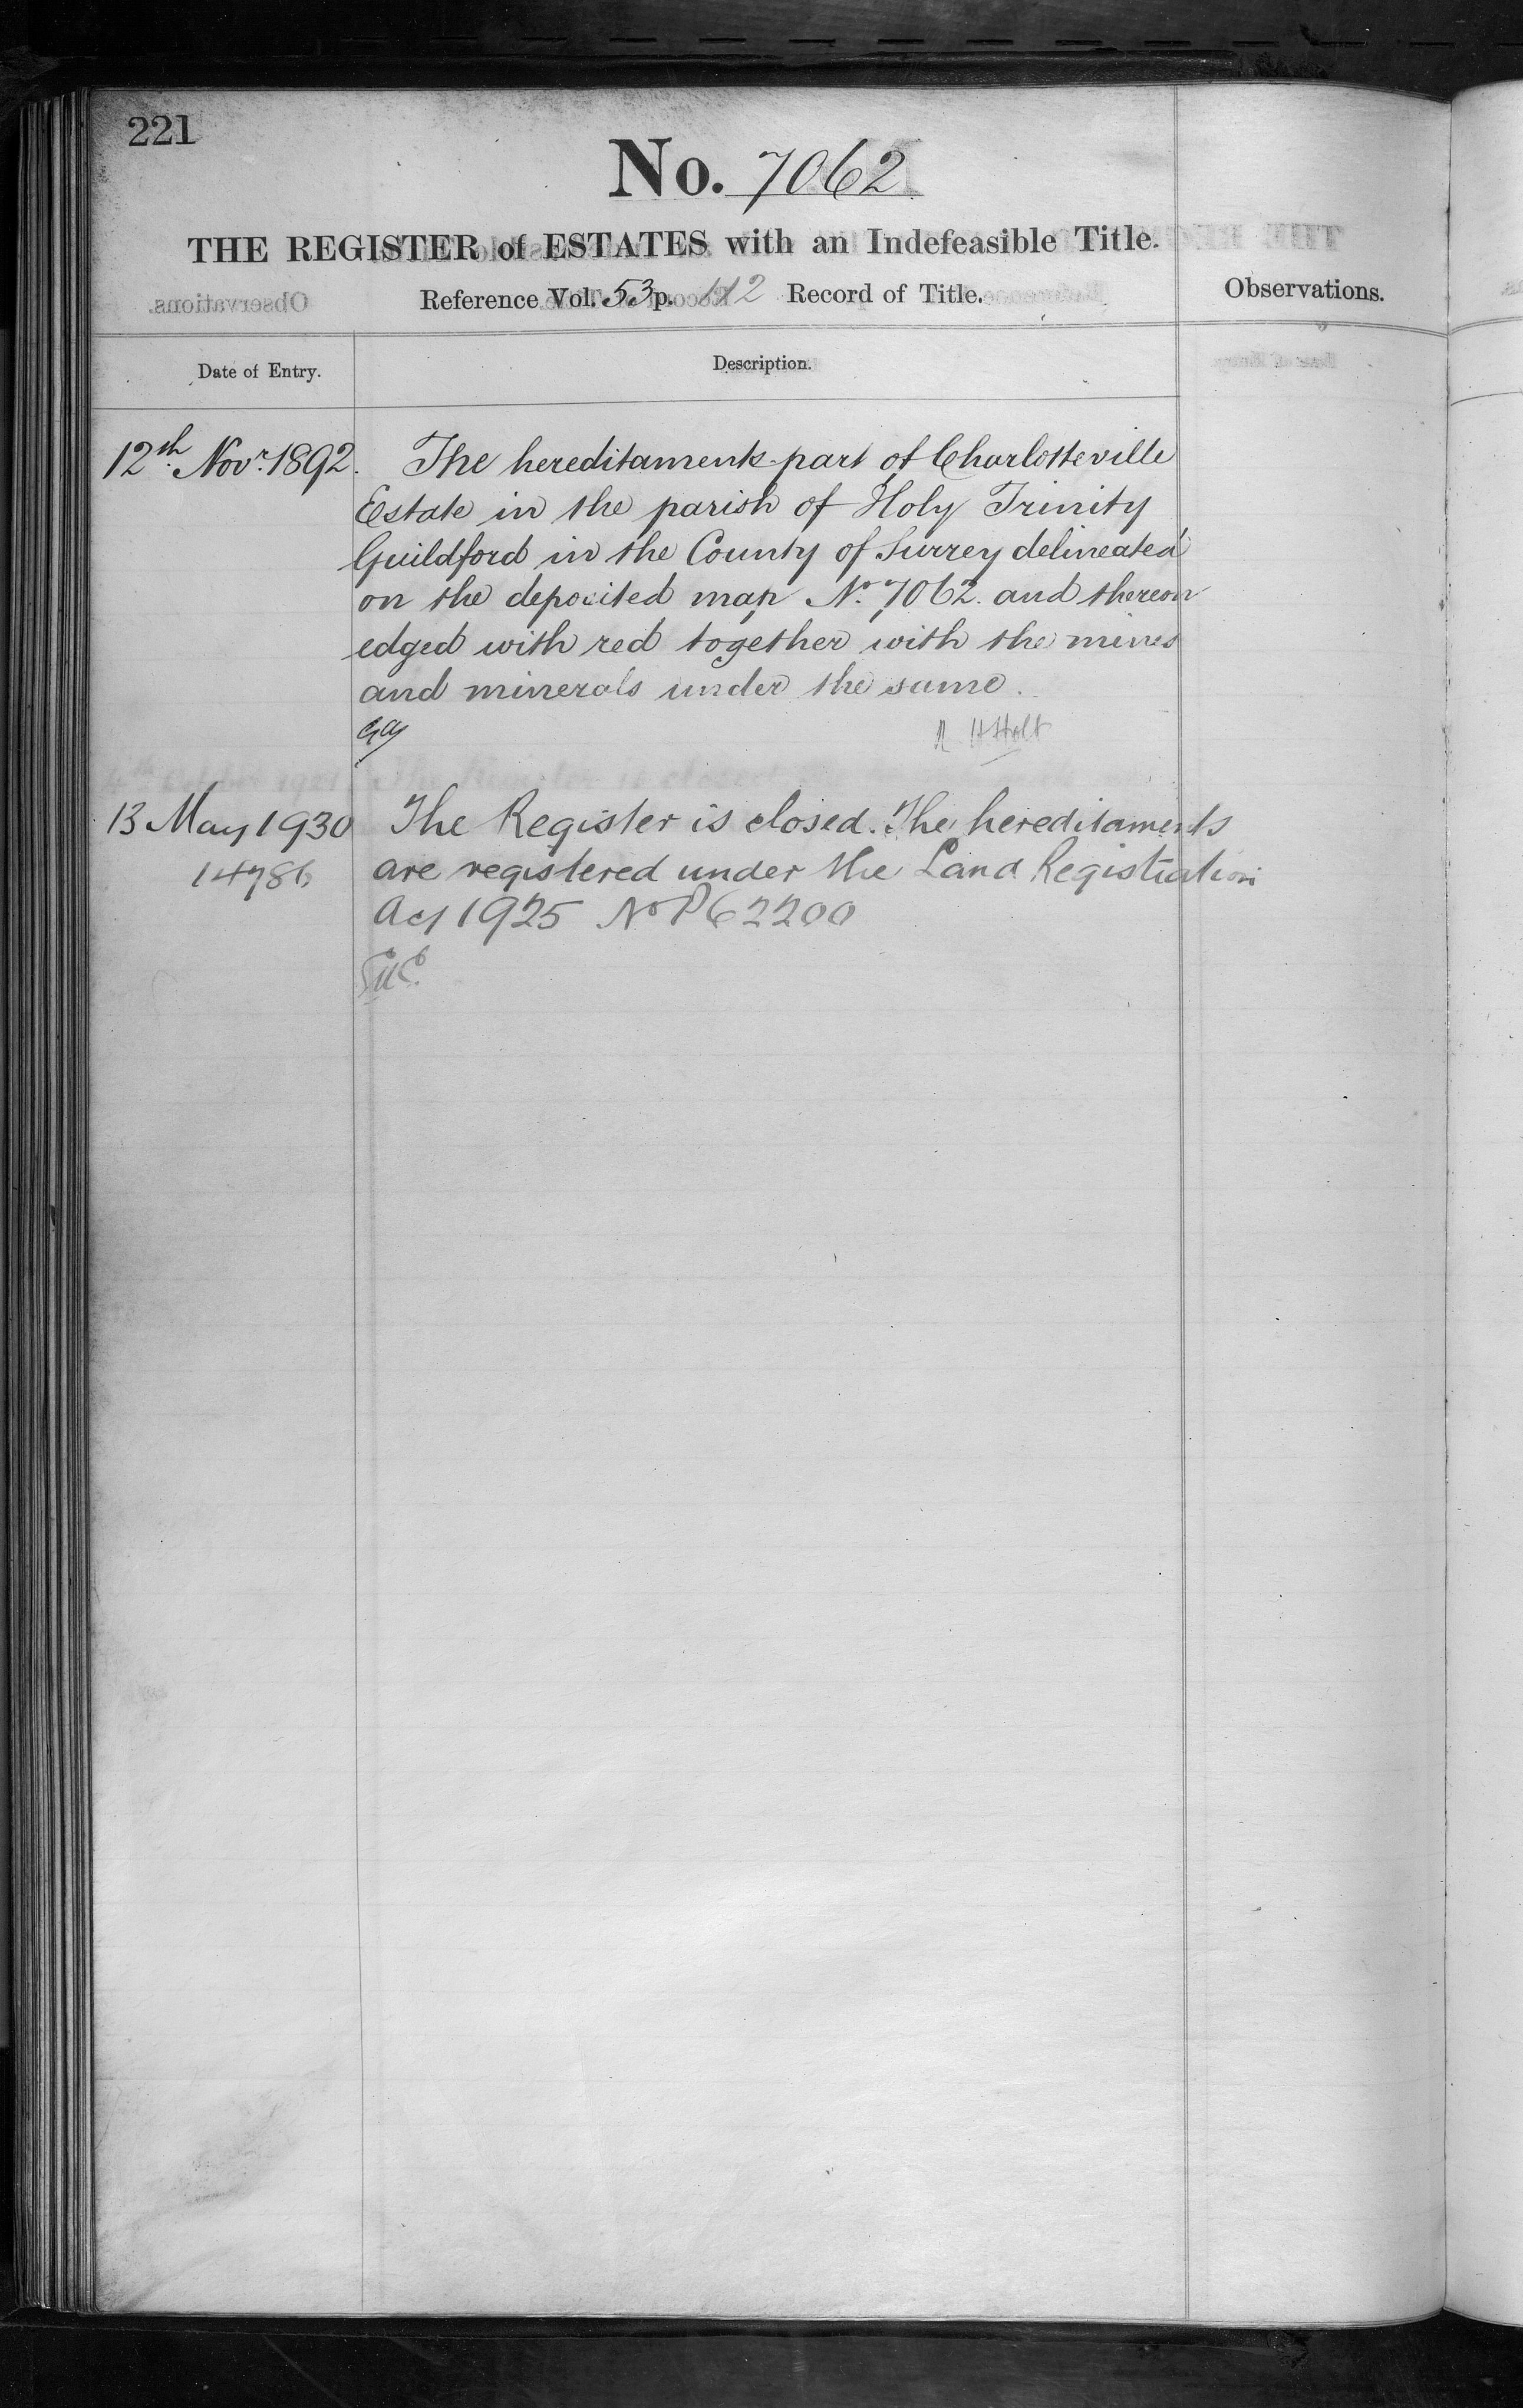 221
No. 7062
THE REGISTER of ESTATES with an Indefeasible Title.
Reference Vol. 53 p. 112 Record of Title.
Observations.
Date of Entry.
Description.
12th Novr. 1892.
The hereditaments part of Charlotteville
Estate in the parish of Holy Trinity
Guildford in the County of Surrey delineated
on the deposited map No. 7062. and thereon
edged with red together with the mines
and minerals under the same.
H Holt
13 May 1930
The Register is closed. The hereditaments
14786
are registered under the Land Registration
Act 1925 No P62200